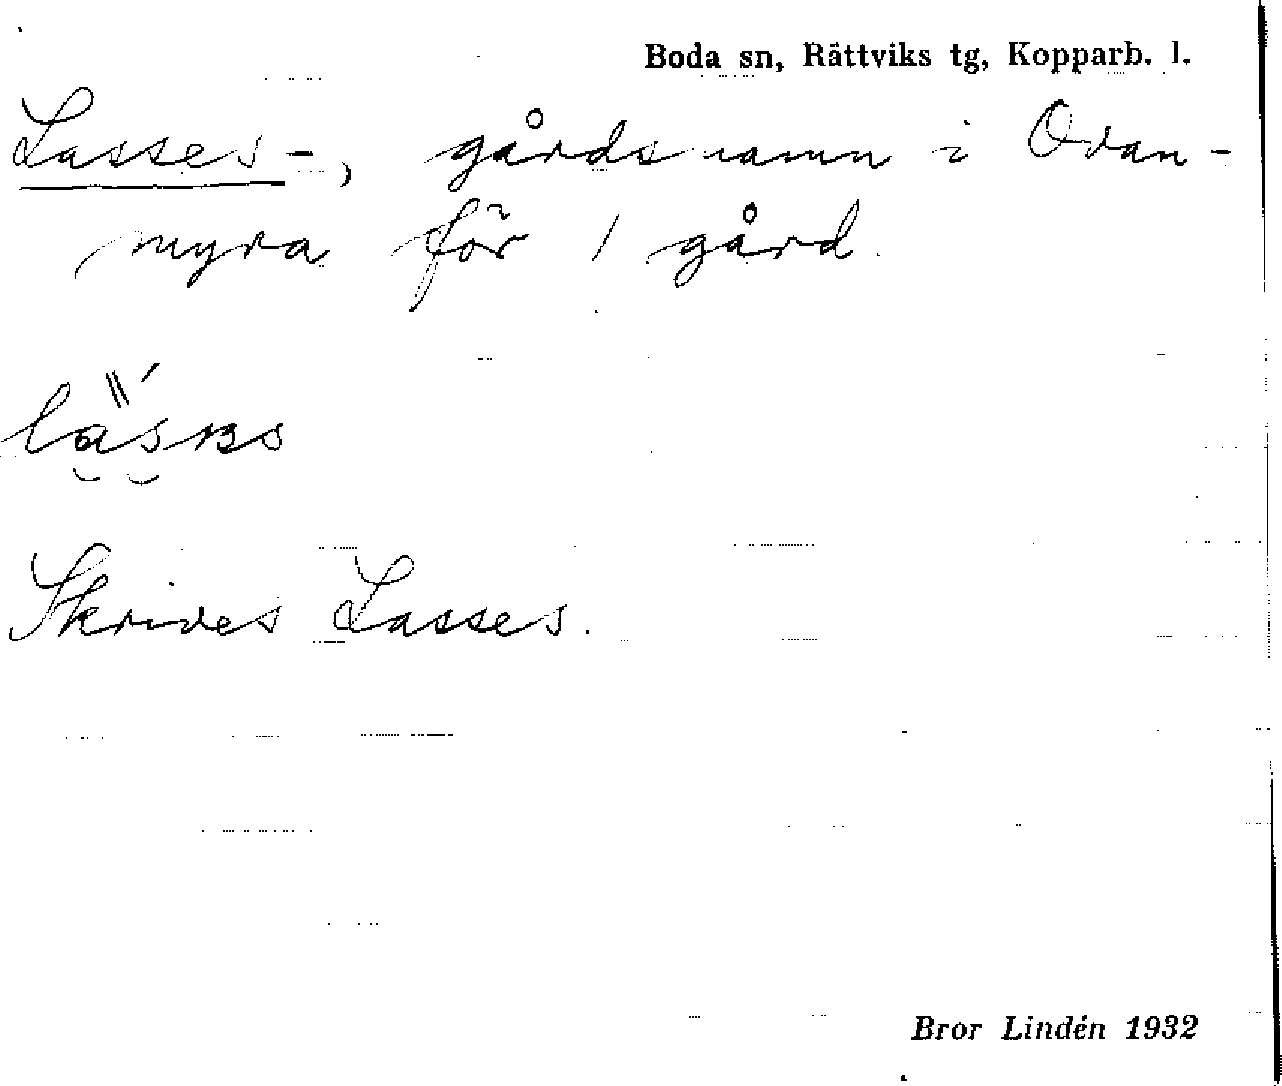 Boda sn, Rättviks tg, Kopparb. l.
Lasses-, gårdsnamn i Ovan-
myra för 1 gård.
Skrives Lasses.
Bror Lindén 1932